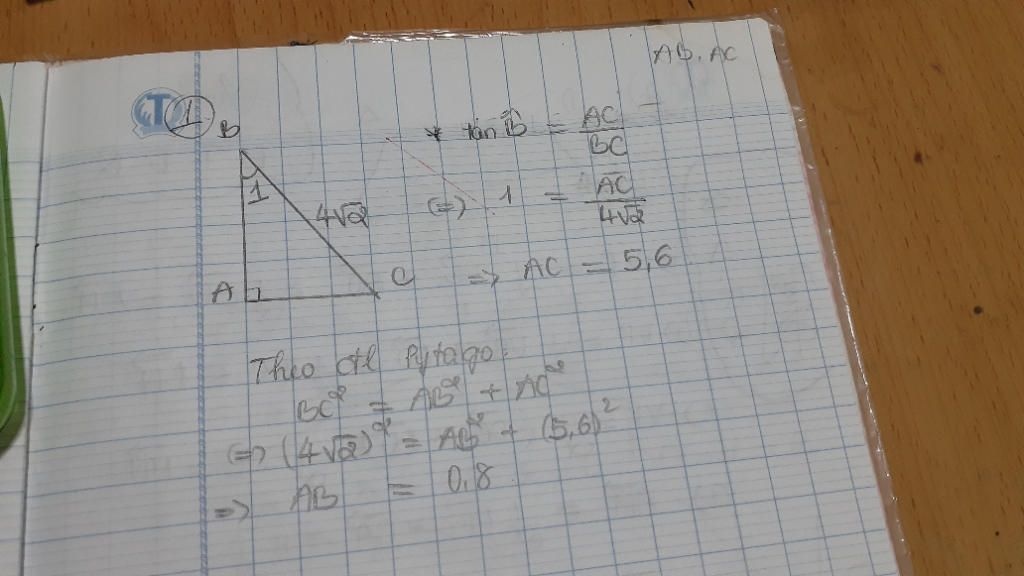 AB, AC
T 1
B
1
4√2
A
C
* tan B̂ = AC/BC
(=) 1 = AC/4√2
=> AC = 5,6
Theo đtl Pytago:
BC² = AB² + AC²
(=) (4√2)² = AB² + (5,6)²
=> AB = 0,8